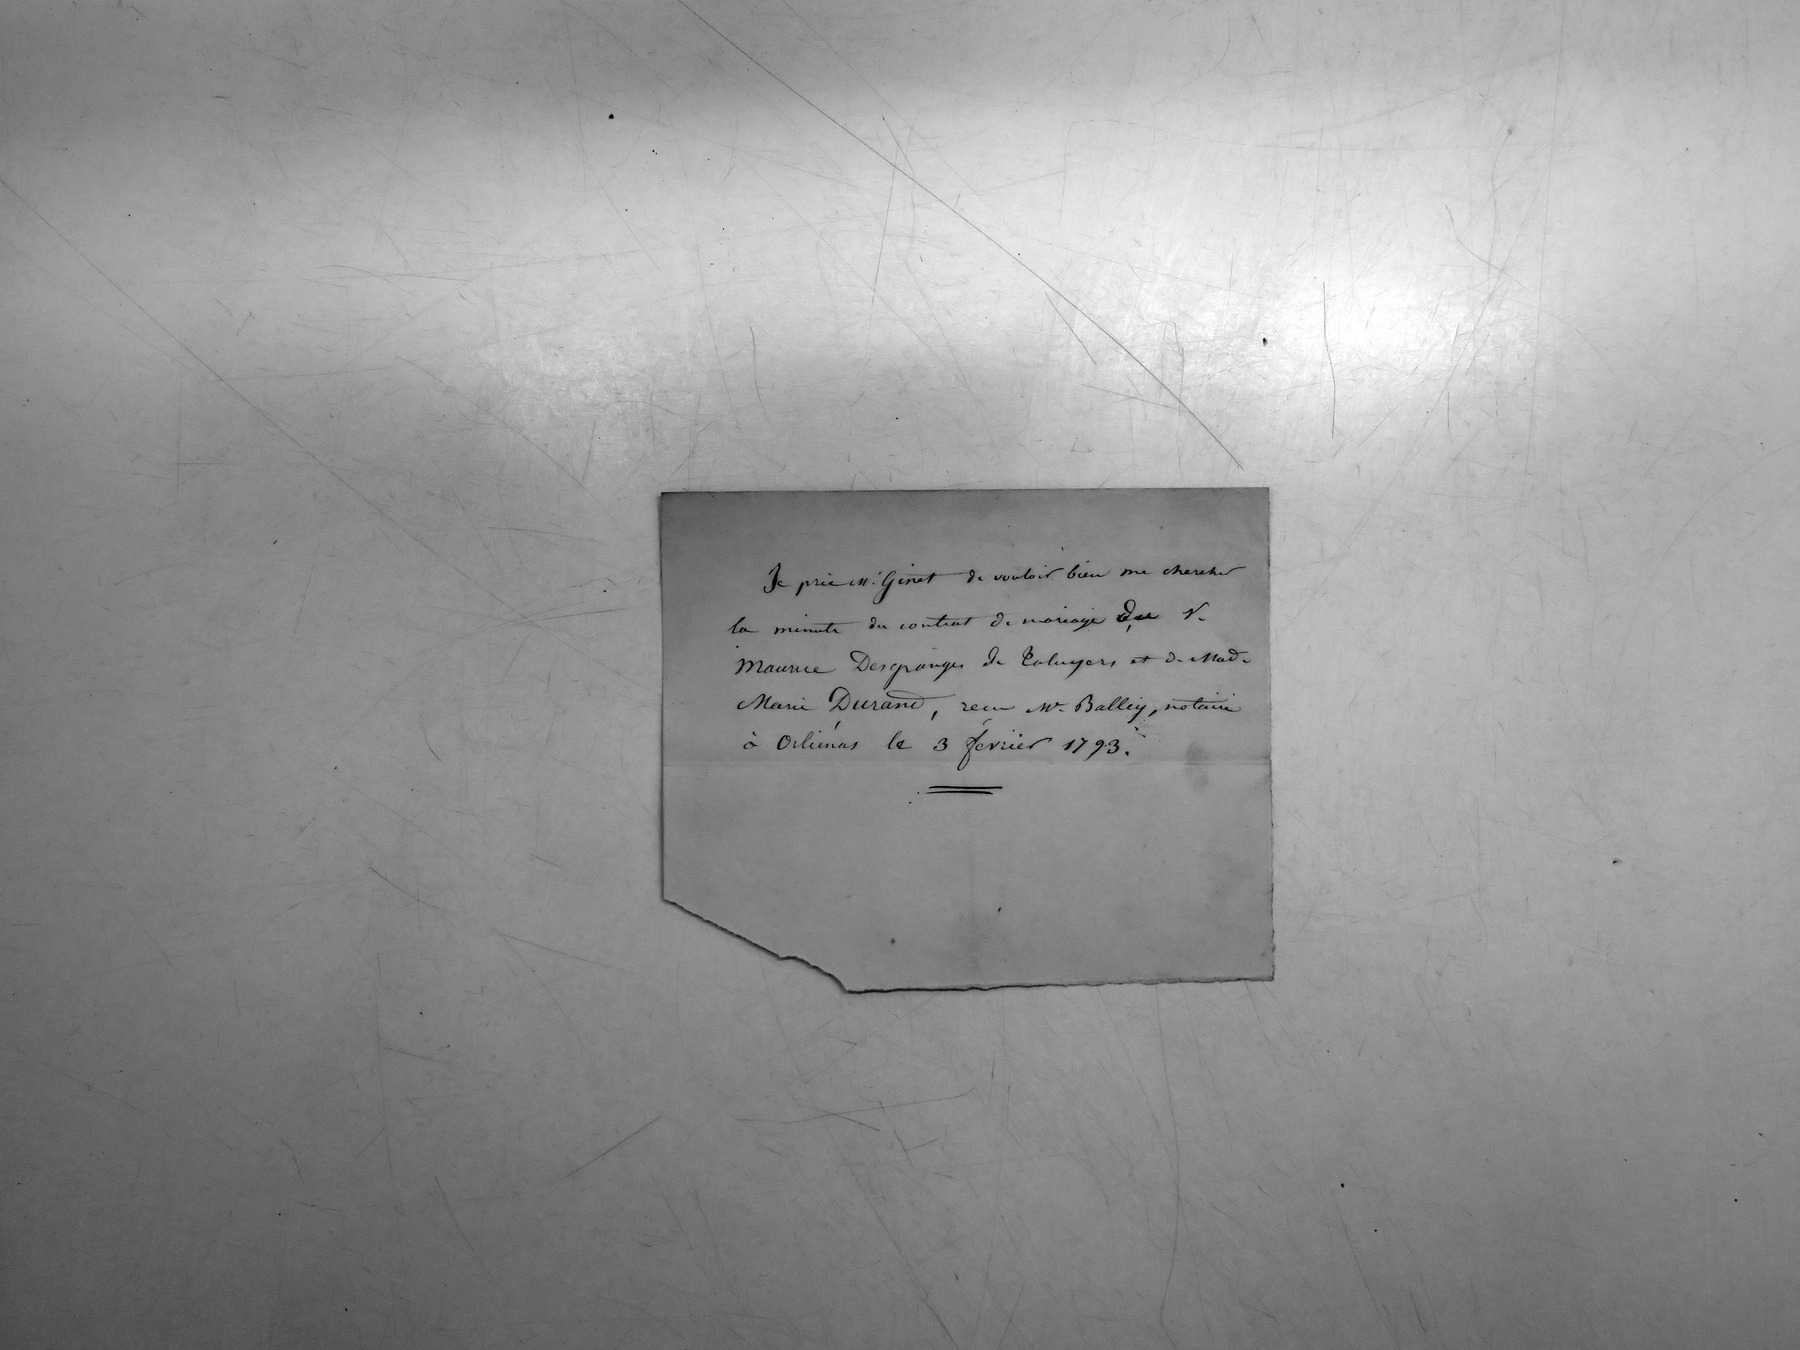 Je prie M. Ginet de vouloir bien me chercher
la minute du contrat de mariage de
Maurice Desgranges de Taluyers et de Mad.
Marie Durand, reçu Me Balley, notaire
à Orliénas le 3 février 1793.